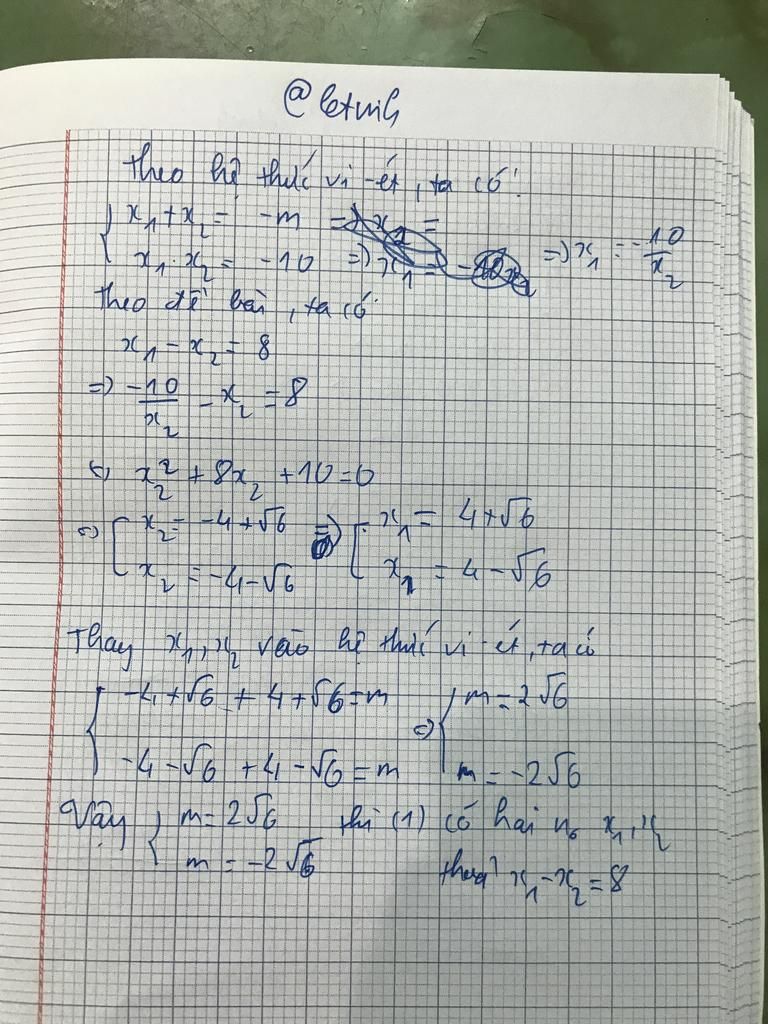 @letmih
Theo hệ thức vi-ét, ta có:
{ x₁ + x₂ = -m
x₁ . x₂ = -10 => x₁ = -10/x₂
Theo đề bài, ta có
x₁ - x₂ = 8
=> -10/x₂ - x₂ = 8
<=> x₂² + 8x₂ + 10 = 0
<=> [ x₂ = -4+√6 => [ x₁ = 4+√6
x₂ = -4-√6 x₁ = 4-√6
Thay x₁, x₂ vào hệ thức vi-ét, ta có
{ -4+√6 + 4+√6 = m <=> { m = 2√6
-4-√6 + 4-√6 = m m = -2√6
Vậy { m = 2√6 thì (1) có hai n₀ x₁, x₂
m = -2√6 thoả x₁ - x₂ = 8